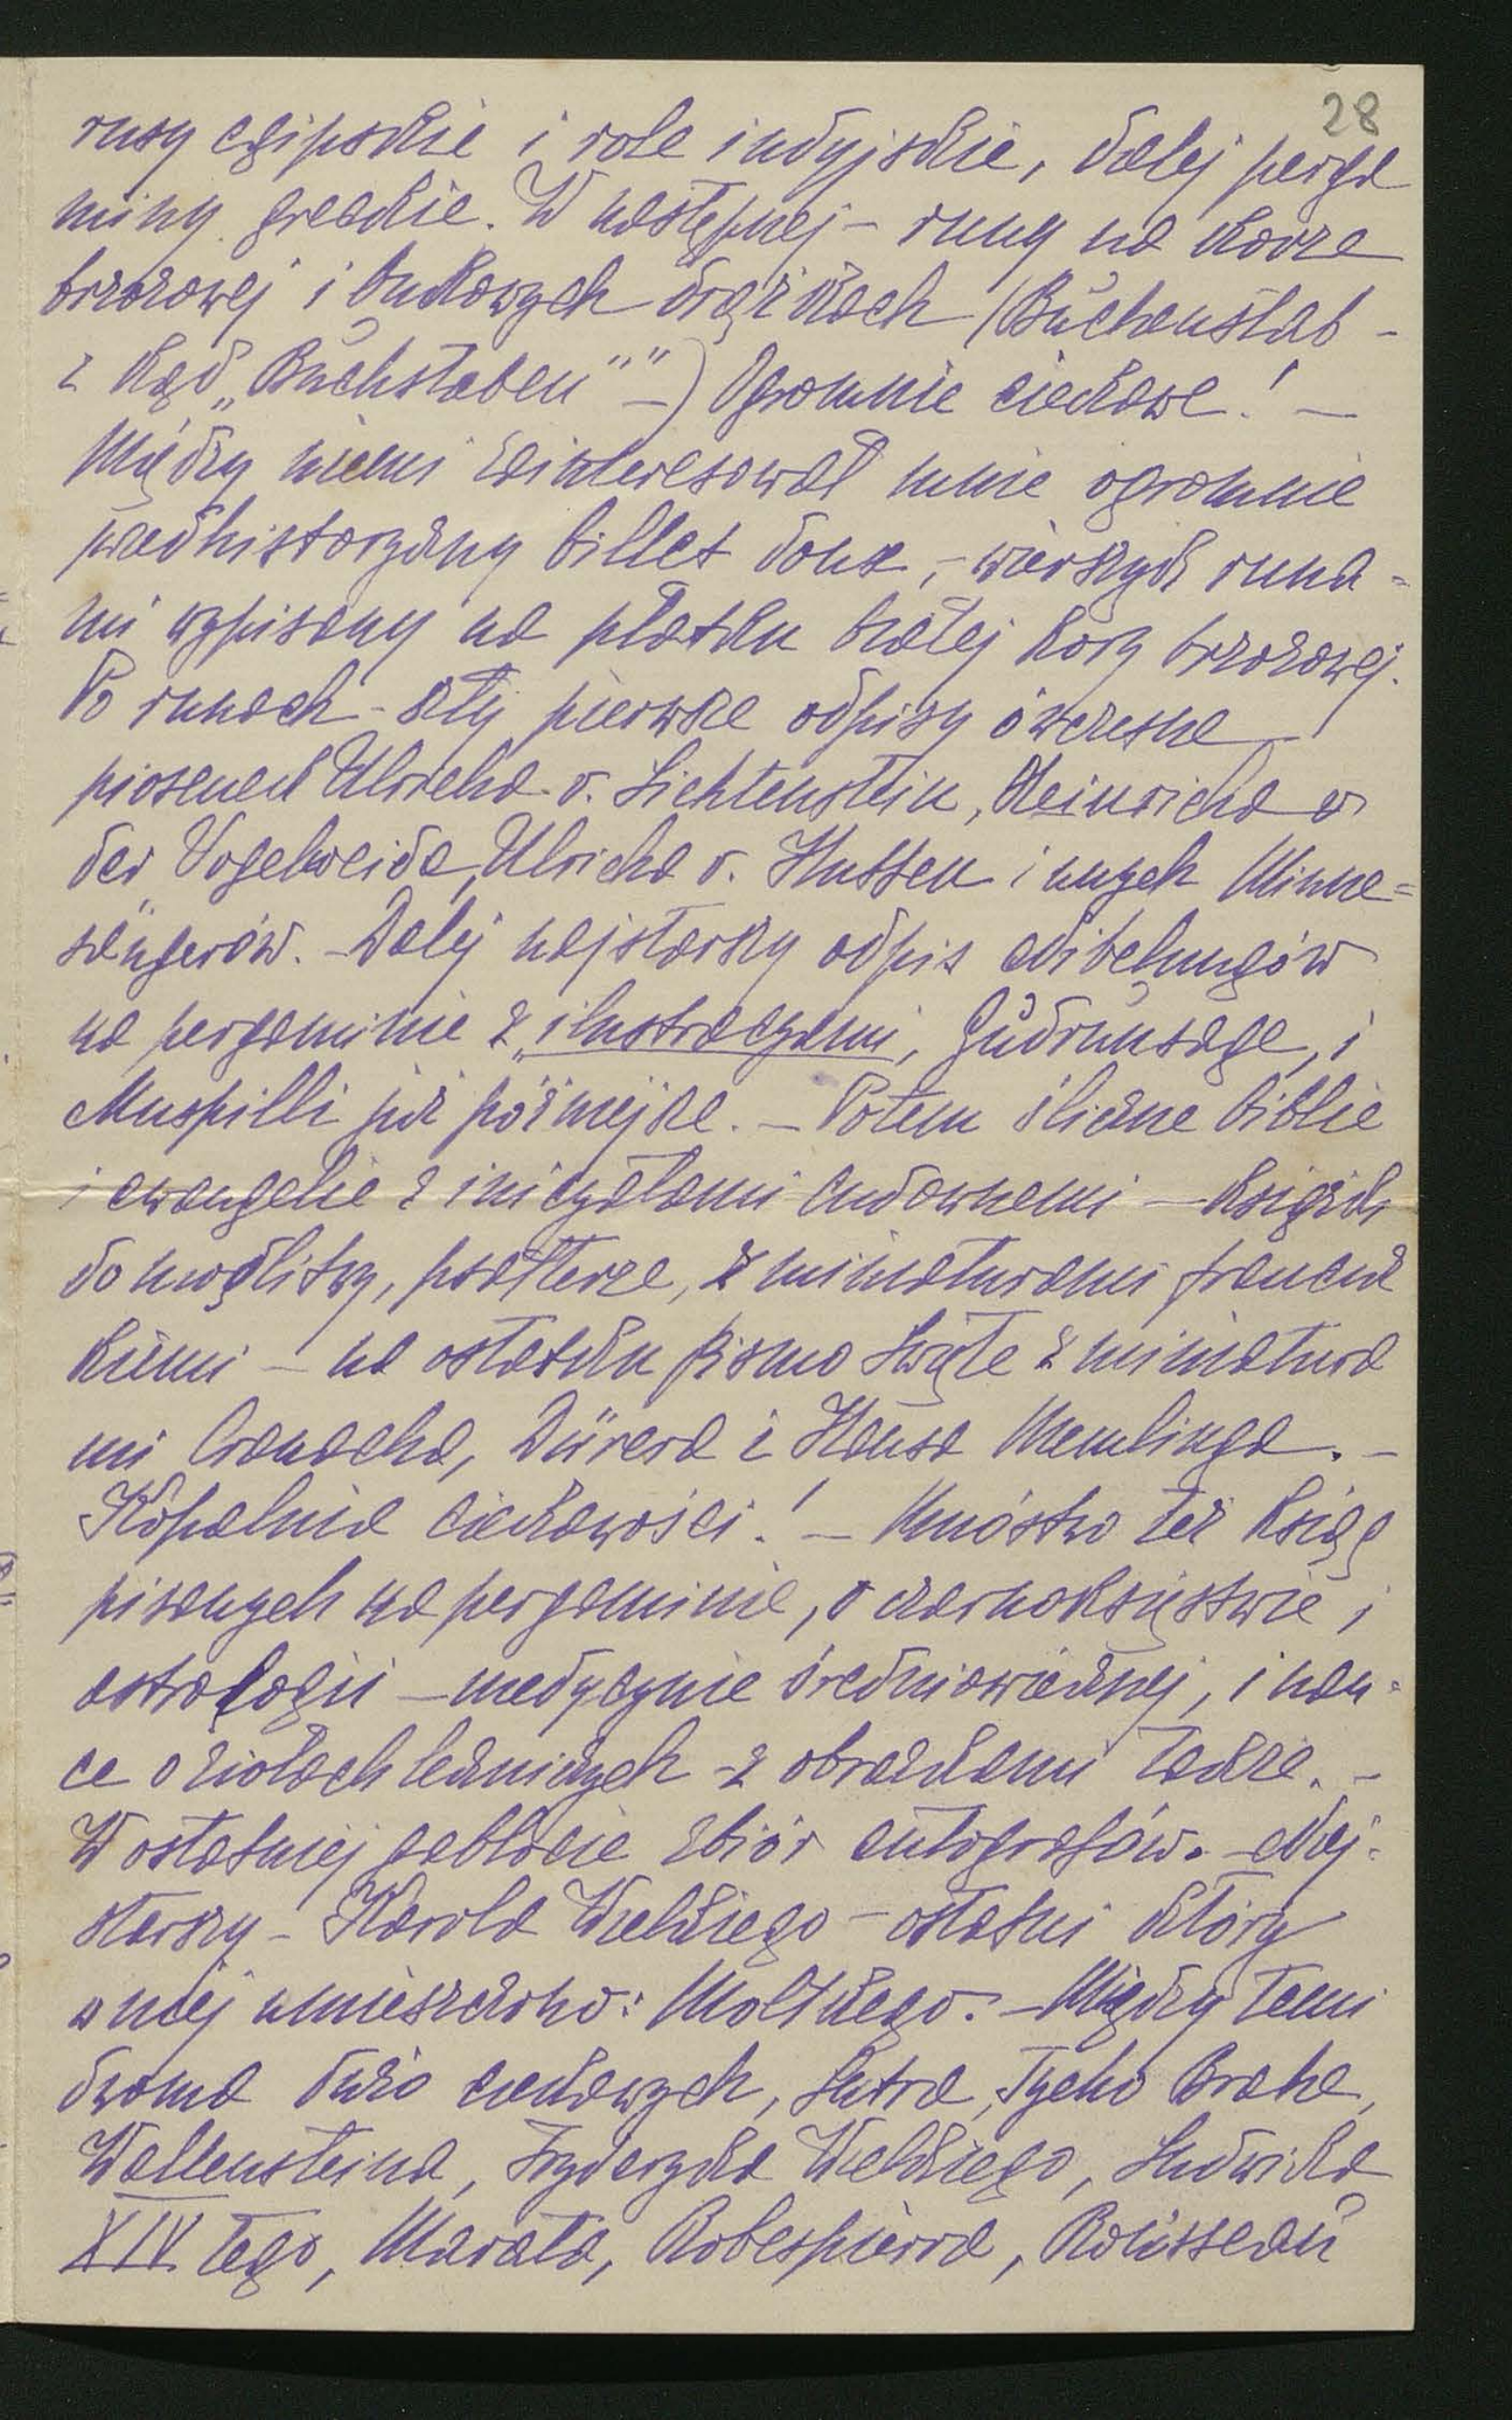 28
rusy egipskie i role indyjskie, dalej perga
miny greckie. W następnej – runy na korze
brzozowej i bukowych drążkach (Buchenstab –
z kąd „Buchstaben"" –) Ogromnie ciekawe! –
Między niemi zainteresował mnie ogromnie
przedhistoryczny billet doux, – wierszyk runa =
mi wypisany na płatku białej kory brzozowej.
Po runach – szły pierwsze odpisy ówczesne
piosenek Ulricha v. Lichtenstein, Heinricha v
der Vogelweide, Ulricha v. Hutten i innych Minne =
sängerów. – Dalej najstarszy odpis Nibelungów
na pergaminie z „ilustracyami, Gudrunsage, i
Muspilli już późniejsze. – Potem śliczne biblie
i ewangelie z inicyałami cudownemi – książki
do modlitwy, psałterze, z miniaturami francuz
kiemi – na ostatku pismo Święte z miniatura
mi Cranacha, Dürera i Hansa Memlinga. –
Kopalnia ciekawości! – Mnóstwo też Ksiąg
pisanych na pergaminie, o czarnoksięstwie i
astrologii – medycynie średniowiecznej, i nau -
ce o ziołach leczniczych – z obrazkami także. –
W ostatniej gablocie zbiór autografów. – Naj -
starszy – Karola Wielkiego – ostatni który
w niej umieszczono: Moltkego. – Między temi
dwoma dużo ciekawych, Lutra, Tycho Brahe,
Wallensteina, Fryderyka Wielkiego, Ludwika
XIV tego, Marata, Robespierra, Rousseau